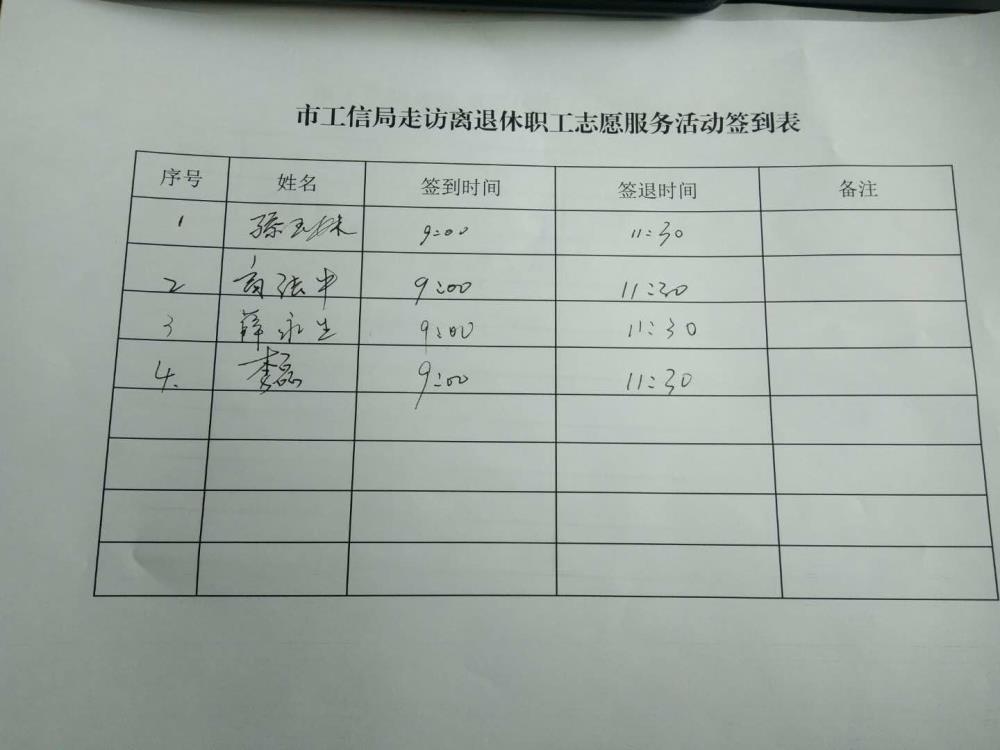 市工信局走访离退休职工志愿服务活动签到表
序号 姓名 签到时间 签退时间 备注
1 孙玉妹 9:00 11:30
2 9:00 11:30
3 薛永生 9:00 11:30
4. 李磊 9:00 11:30